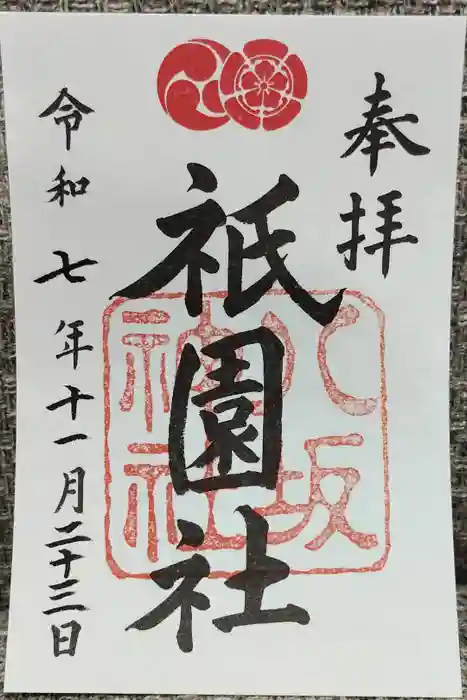 奉拝
八坂
神社
祇園社
令和七年十一月二十三日